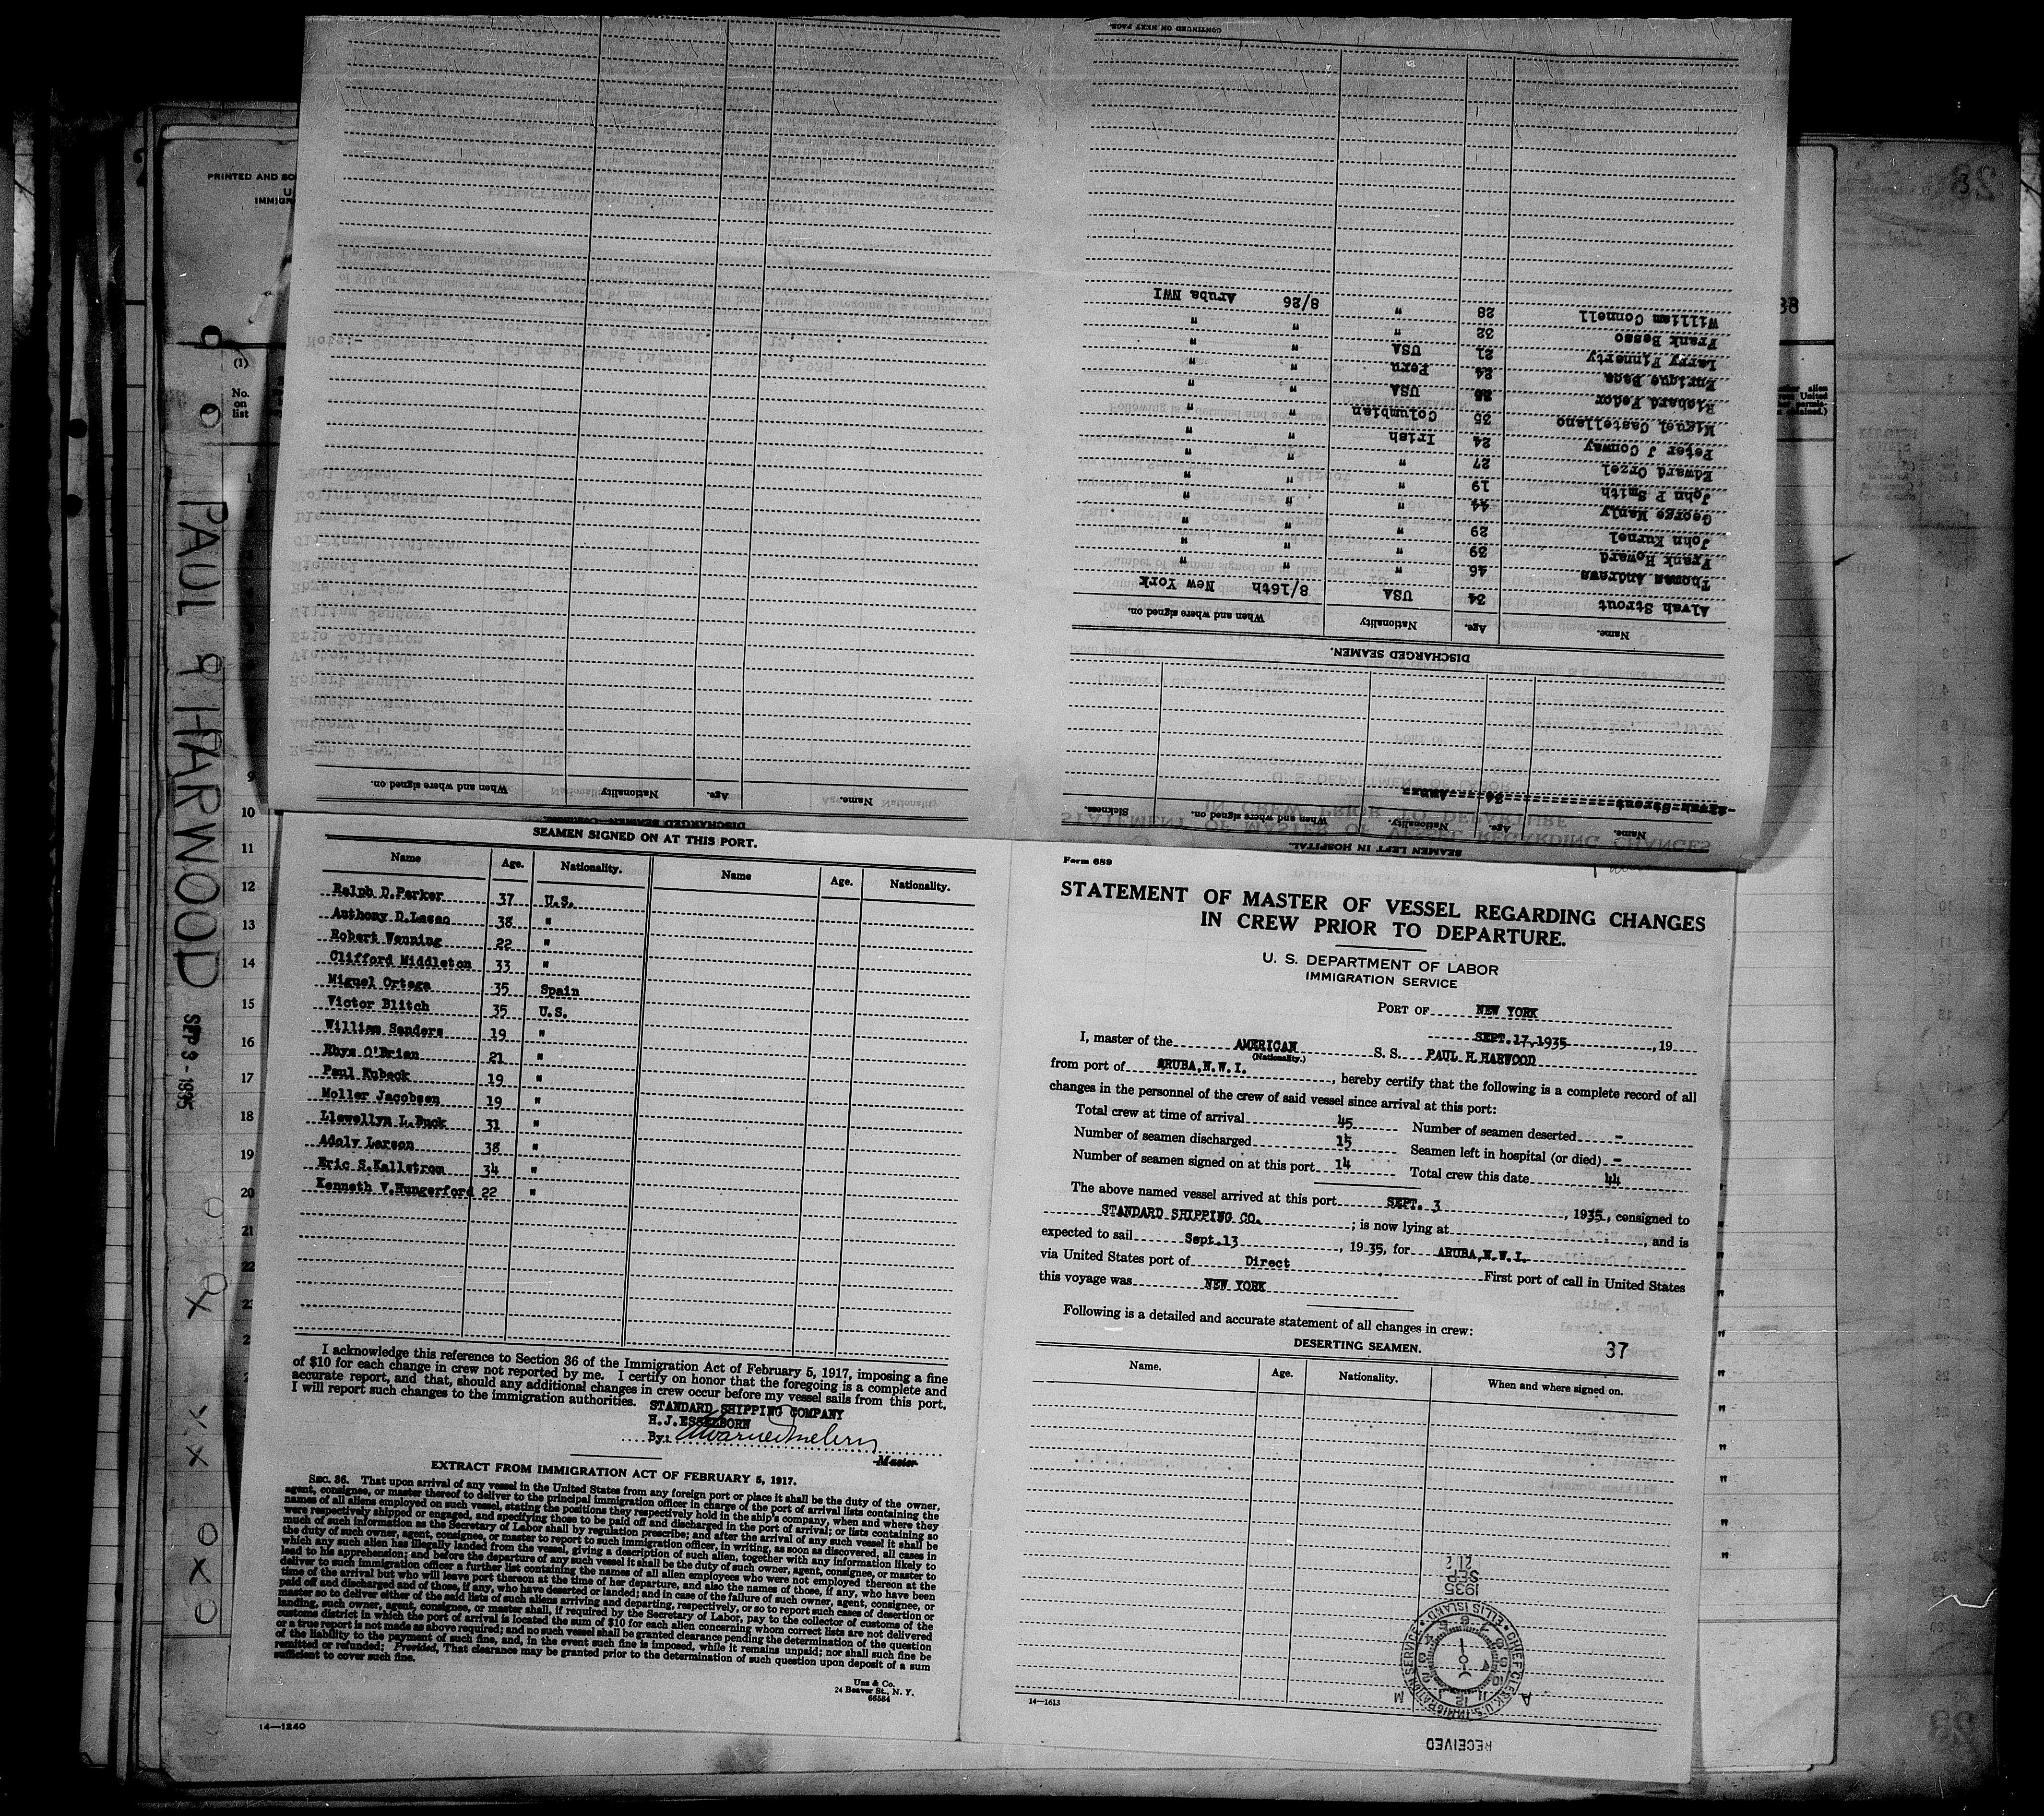 CONTINUED ON NEXT PAGE.
William Connell 28 " 8/26 Aruba NWI
Frank Besso 32 " " "
Larry Finnerty 21 USA " "
Enrique Baca 24 Peru " "
Richard Fedor USA " "
Miguel Castellano 35 Columbian " "
Peter J Conway 24 Irish " "
Edward Orzel 27 " " "
John P Smith 19 " " "
George Manly 44 " " "
John Kurnel 29 " " "
Frank Howard 39 " " "
Thomas Andrews 46 " " "
Alvah Strout 34 USA 8/16th New York
Name. Age. Nationality When and where signed on.
DISCHARGED SEAMEN.
Name. Age. Nationality. When and where signed on. Sickness.
SEAMEN LEFT IN HOSPITAL.
Name. Age. Nationality When and where signed on.
PRINTED AND SO
IMMIGR
(1)
No. on list
PAUL H HARWOOD SEP 3 - 1935
SEAMEN SIGNED ON AT THIS PORT.
Name Age. Nationality. Name Age. Nationality.
Ralph D.Parker 37 U.S.
Anthony D.Lasao 38 "
Robert Wenning 22 "
Clifford Middleton 33 "
Miguel Ortega 35 Spain
Victor Blitch 35 U.S.
William Sanders 19 "
Rhys O'Brian 21 "
Paul Kubeck 19 "
Moller Jacobsen 19 "
Llewellyn L.Buck 31 "
Adolv Larson 38 "
Eric S.Kallstrom 34 "
Kenneth V.Hungerford 22 "
I acknowledge this reference to Section 36 of the Immigration Act of February 5, 1917, imposing a fine
of $10 for each change in crew not reported by me. I certify on honor that the foregoing is a complete and
accurate report, and that, should any additional changes in crew occur before my vessel sails from this port,
I will report such changes to the immigration authorities.
STANDARD SHIPPING COMPANY
H.J.ESSELBORN
By:
Master
EXTRACT FROM IMMIGRATION ACT OF FEBRUARY 5, 1917.
SEC. 36. That upon arrival of any vessel in the United States from any foreign port or place it shall be the duty of the owner,
agent, consignee, or master thereof to deliver to the principal immigration officer in charge of the port of arrival lists containing the
names of all aliens employed on such vessel, stating the positions they respectively hold in the ship's company, when and where they
were respectively shipped or engaged, and specifying those to be paid off and discharged in the port of arrival; or lists containing so
much of such information as the Secretary of Labor shall by regulation prescribe; and after the arrival of any such vessel it shall be
the duty of such owner, agent, consignee, or master to report to such immigration officer, in writing, as soon as discovered, all cases in
which any such alien has illegally landed from the vessel, giving a description of such alien, together with any information likely to
lead to his apprehension; and before the departure of any such vessel it shall be the duty of such owner, agent, consignee, or master to
deliver to such immigration officer a further list containing the names of all alien employees who were not employed thereon at the
time of the arrival but who will leave port thereon at the time of her departure, and also the names of those, if any, who have been
paid off and discharged and of those, if any, who have deserted or landed; and in case of the failure of such owner, agent, consignee, or
master so to deliver either of the said lists of such aliens arriving and departing, respectively, or so to report such cases of desertion or
landing, such owner, agent, consignee, or master shall, if required by the Secretary of Labor, pay to the collector of customs of the
customs district in which the port of arrival is located the sum of $10 for each alien concerning whom correct lists are not delivered
or a true report is not made as above required; and no such vessel shall be granted clearance pending the determination of the question
of the liability to the payment of such fine, and, in the event such fine is imposed, while it remains unpaid; nor shall such fine be
remitted or refunded; Provided, That clearance may be granted prior to the determination of such question upon deposit of a sum
sufficient to cover such fine.
Unz & Co.
24 Beaver St., N. Y.
66584
14—1240
Form 689
STATEMENT OF MASTER OF VESSEL REGARDING CHANGES
IN CREW PRIOR TO DEPARTURE.
U. S. DEPARTMENT OF LABOR
IMMIGRATION SERVICE
PORT OF NEW YORK
SEPT.17,1935, 19
I, master of the AMERICAN S. S. PAUL H.HARWOOD
(Nationality.)
from port of ARUBA,N.W.I., hereby certify that the following is a complete record of all
changes in the personnel of the crew of said vessel since arrival at this port:
Total crew at time of arrival 45 Number of seamen deserted -
Number of seamen discharged 15 Seamen left in hospital (or died) -
Number of seamen signed on at this port 14 Total crew this date 44
The above named vessel arrived at this port SEPT. 3, 1935, consigned to
STANDARD SHIPPING CO.; is now lying at , and is
expected to sail Sept.13, 1935, for ARUBA,N.W.I.
via United States port of Direct First port of call in United States
this voyage was NEW YORK
Following is a detailed and accurate statement of all changes in crew:
DESERTING SEAMEN. 37
Name. Age. Nationality. When and where signed on.
1935
SEP
CHIEF CLERK, U.S. IMMIGRATION SERVICE ELLIS ISLAND
A M
RECEIVED
14—1613